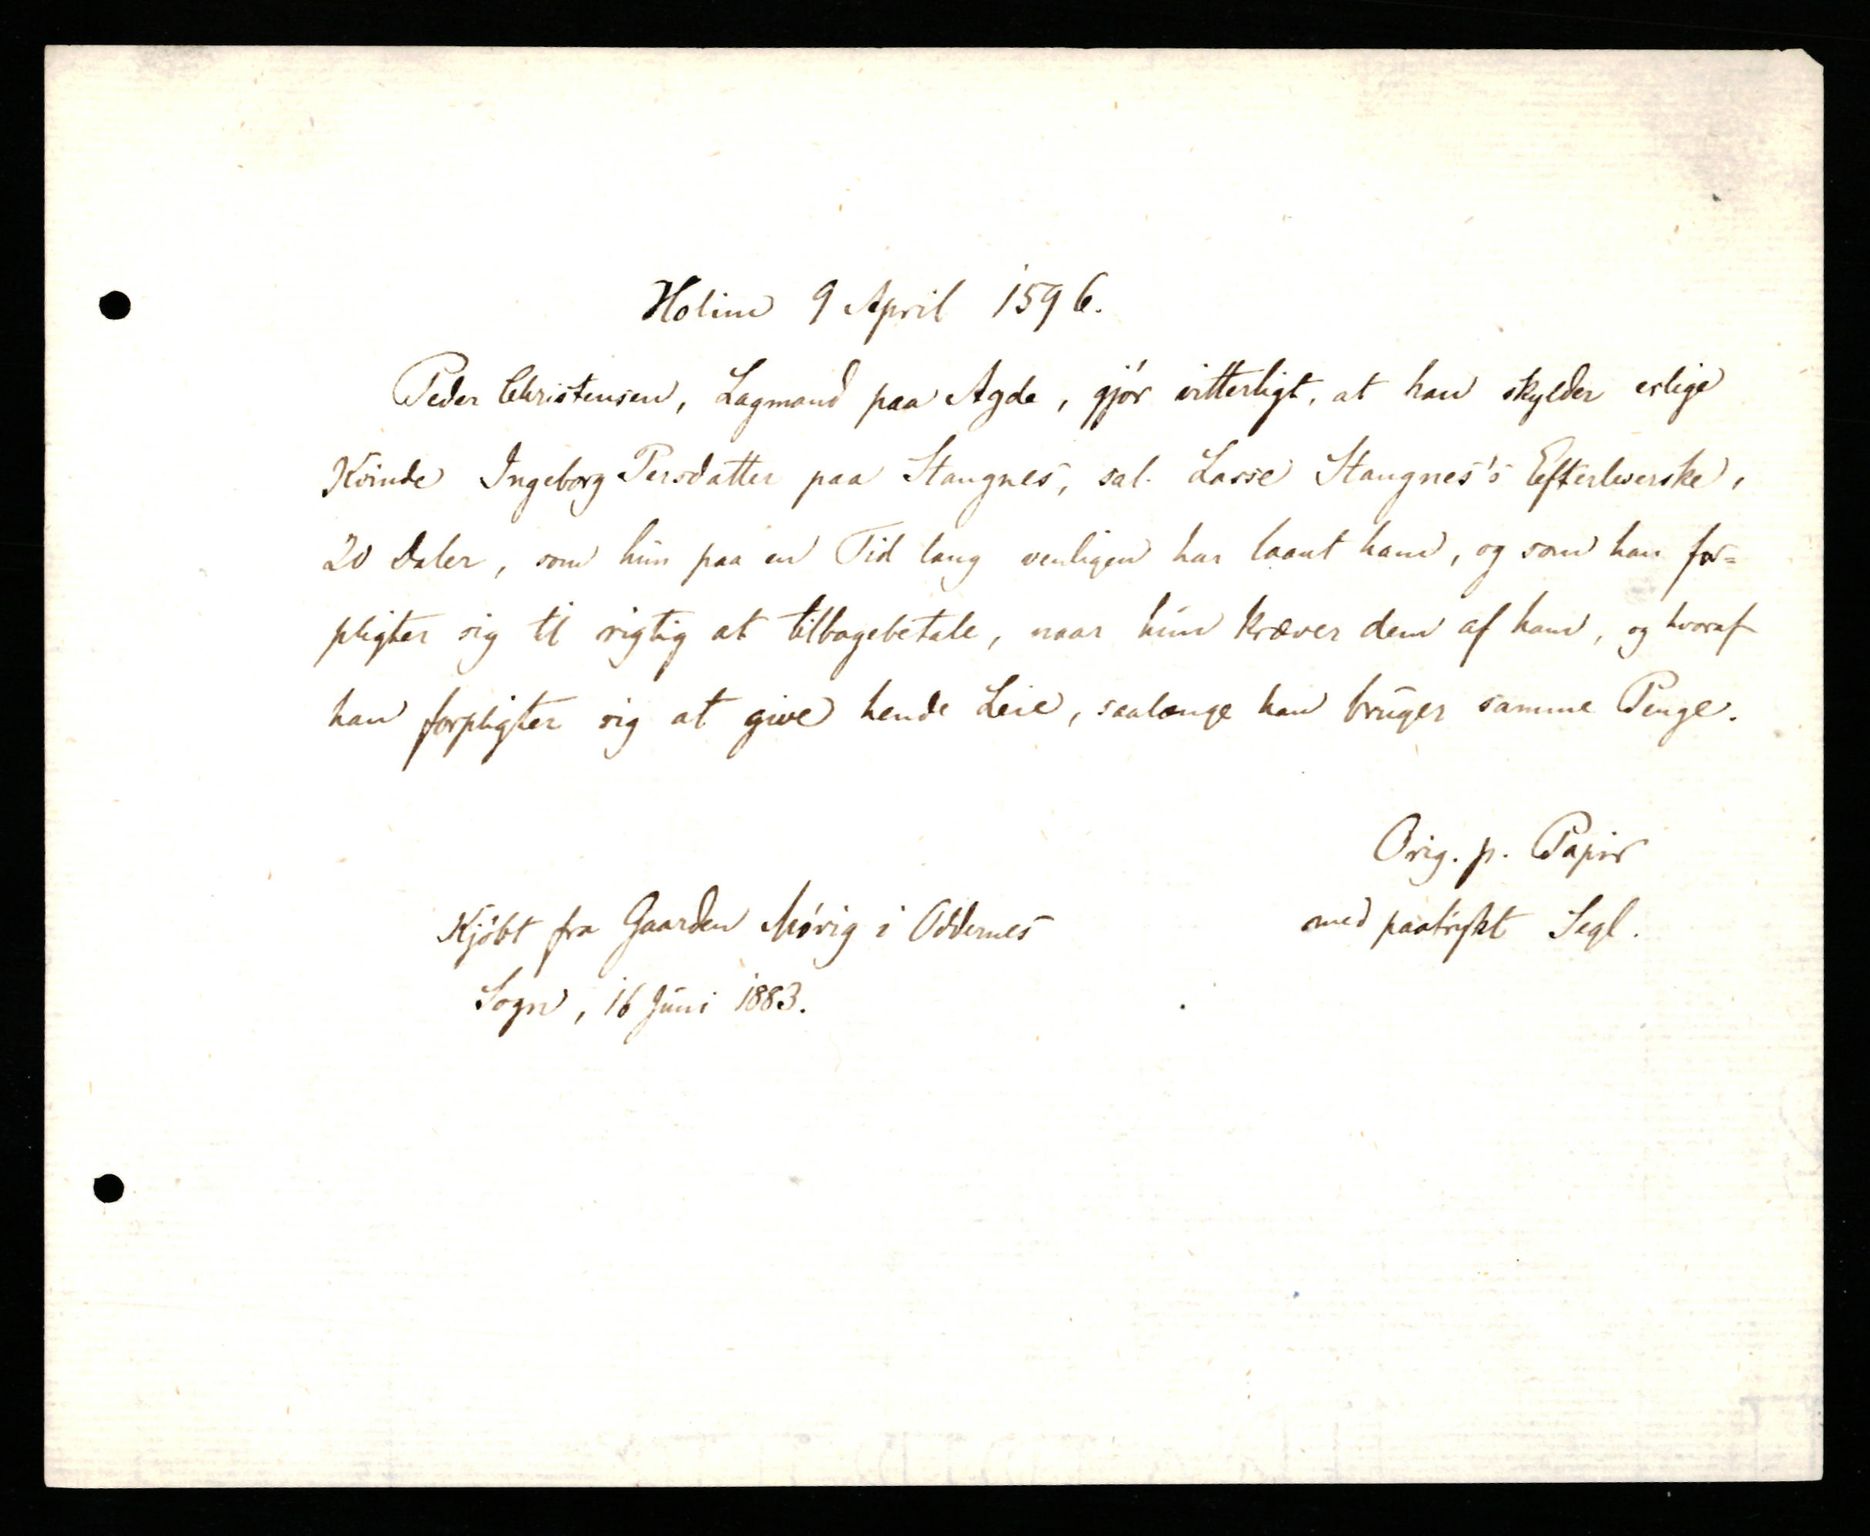 Holum 9 April 1596.
Peder Christensen, Lagmand paa Agde, gjør vitterligt, at han skylder erlige
Kvinde Ingeborg Persdatter paa Stangnes, sal. Lasse Stangnes's Efterleverske,
20 Daler, som hun paa en Tid lang venligen har laant ham, og som han for-
pligter sig til rigtig at tilbagebetale, naar hun kræver dem af ham, og hvoraf
han forpligter sig at give hende Leie, saalænge han bruger samme Penge.
Orig. p. Papir
med paatrykt Segl.
Kjøbt fra Gaarden Møvig i Oddernes
Sogn, 16 Juni 1883.